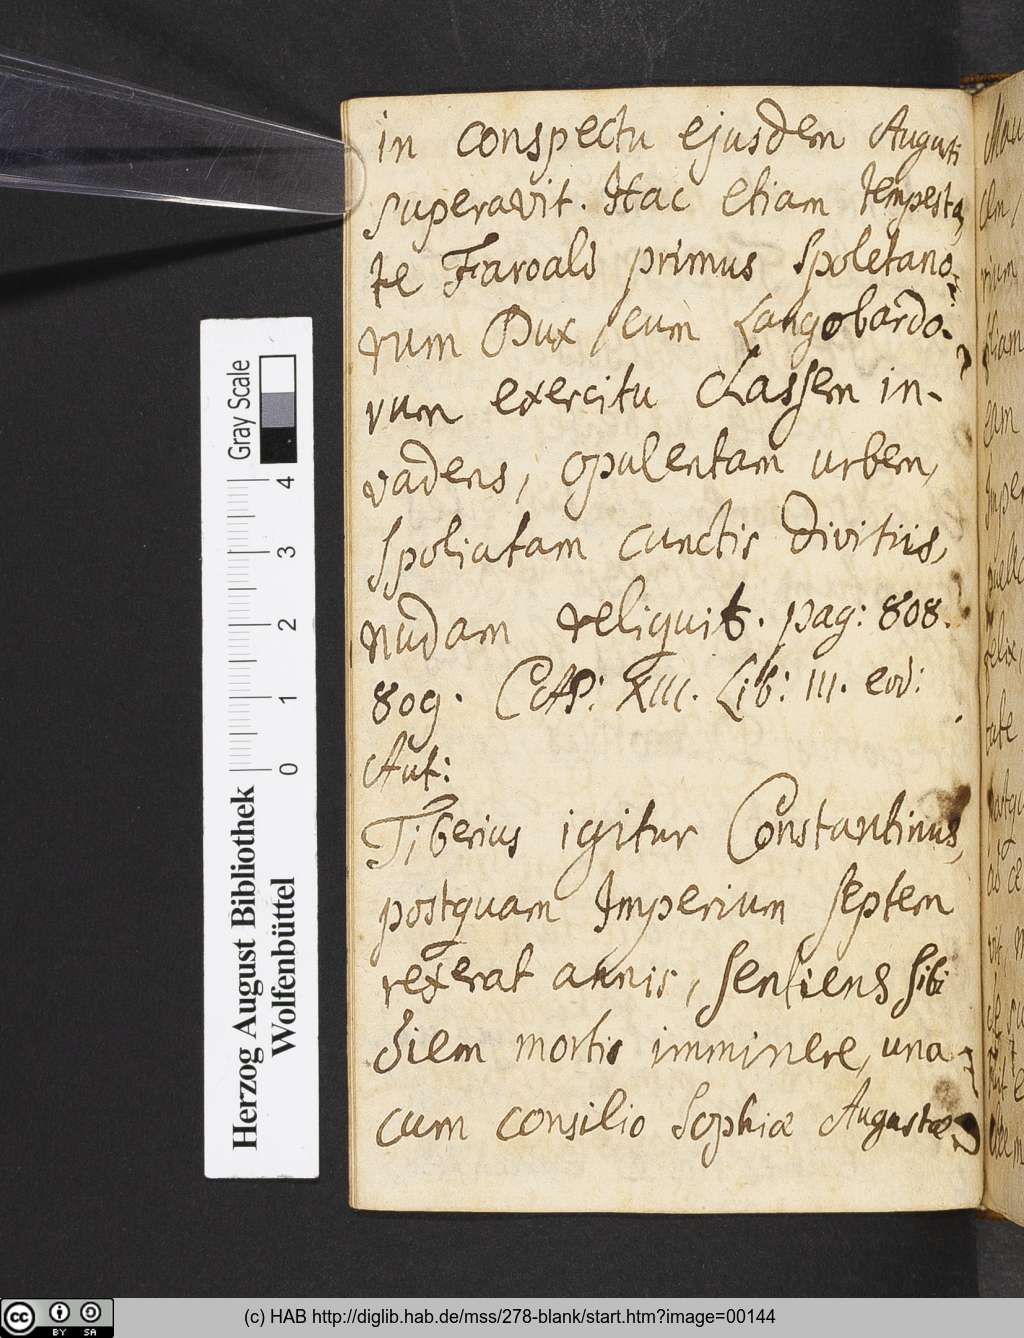 in conspectu ejusdem Augusti
superavit. Hac etiam tempesta,
te Faroald primus Spoletano,
rum Dux, cum Langobardo,
rum exercitu Classem in-
vadens, opulentam urbem,
spoliatam cunctis divitiis,
nudam reliquit. pag: 808.
809. CAP: XIII. Lib: III. eod:
Aut:
Tiberius igitur Constantinus,
postquam Imperium septem
rexerat annis, sentiens sibi
diem mortis imminere, una
cum consilio Sophiæ Augustæ
Gray Scale
4
3
2
1
0
Herzog August Bibliothek
Wolfenbüttel
cc BY SA
(c) HAB http://diglib.hab.de/mss/278-blank/start.htm?image=00144